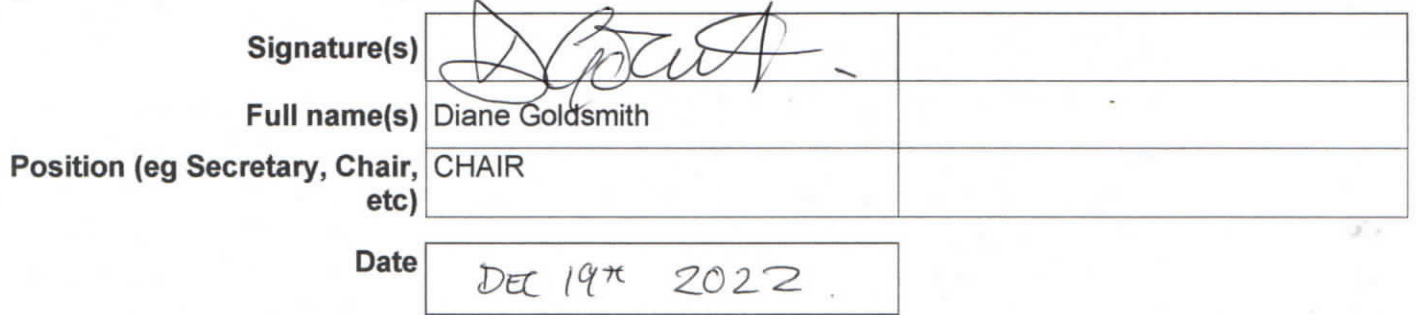 Signature(s)
Full name(s) Diane Goldsmith
Position (eg Secretary, Chair, CHAIR
etc)
Date DEC 19th 2022.